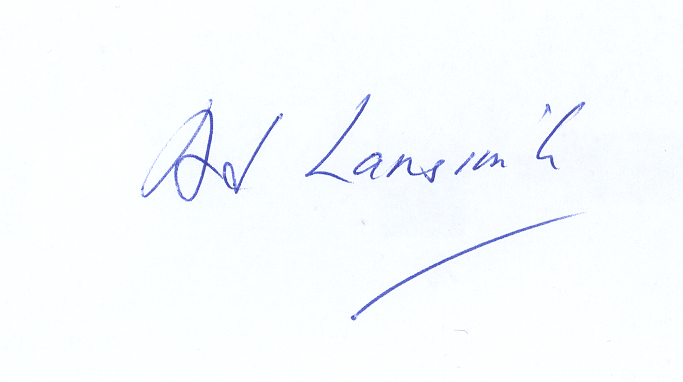 Ad Lansink